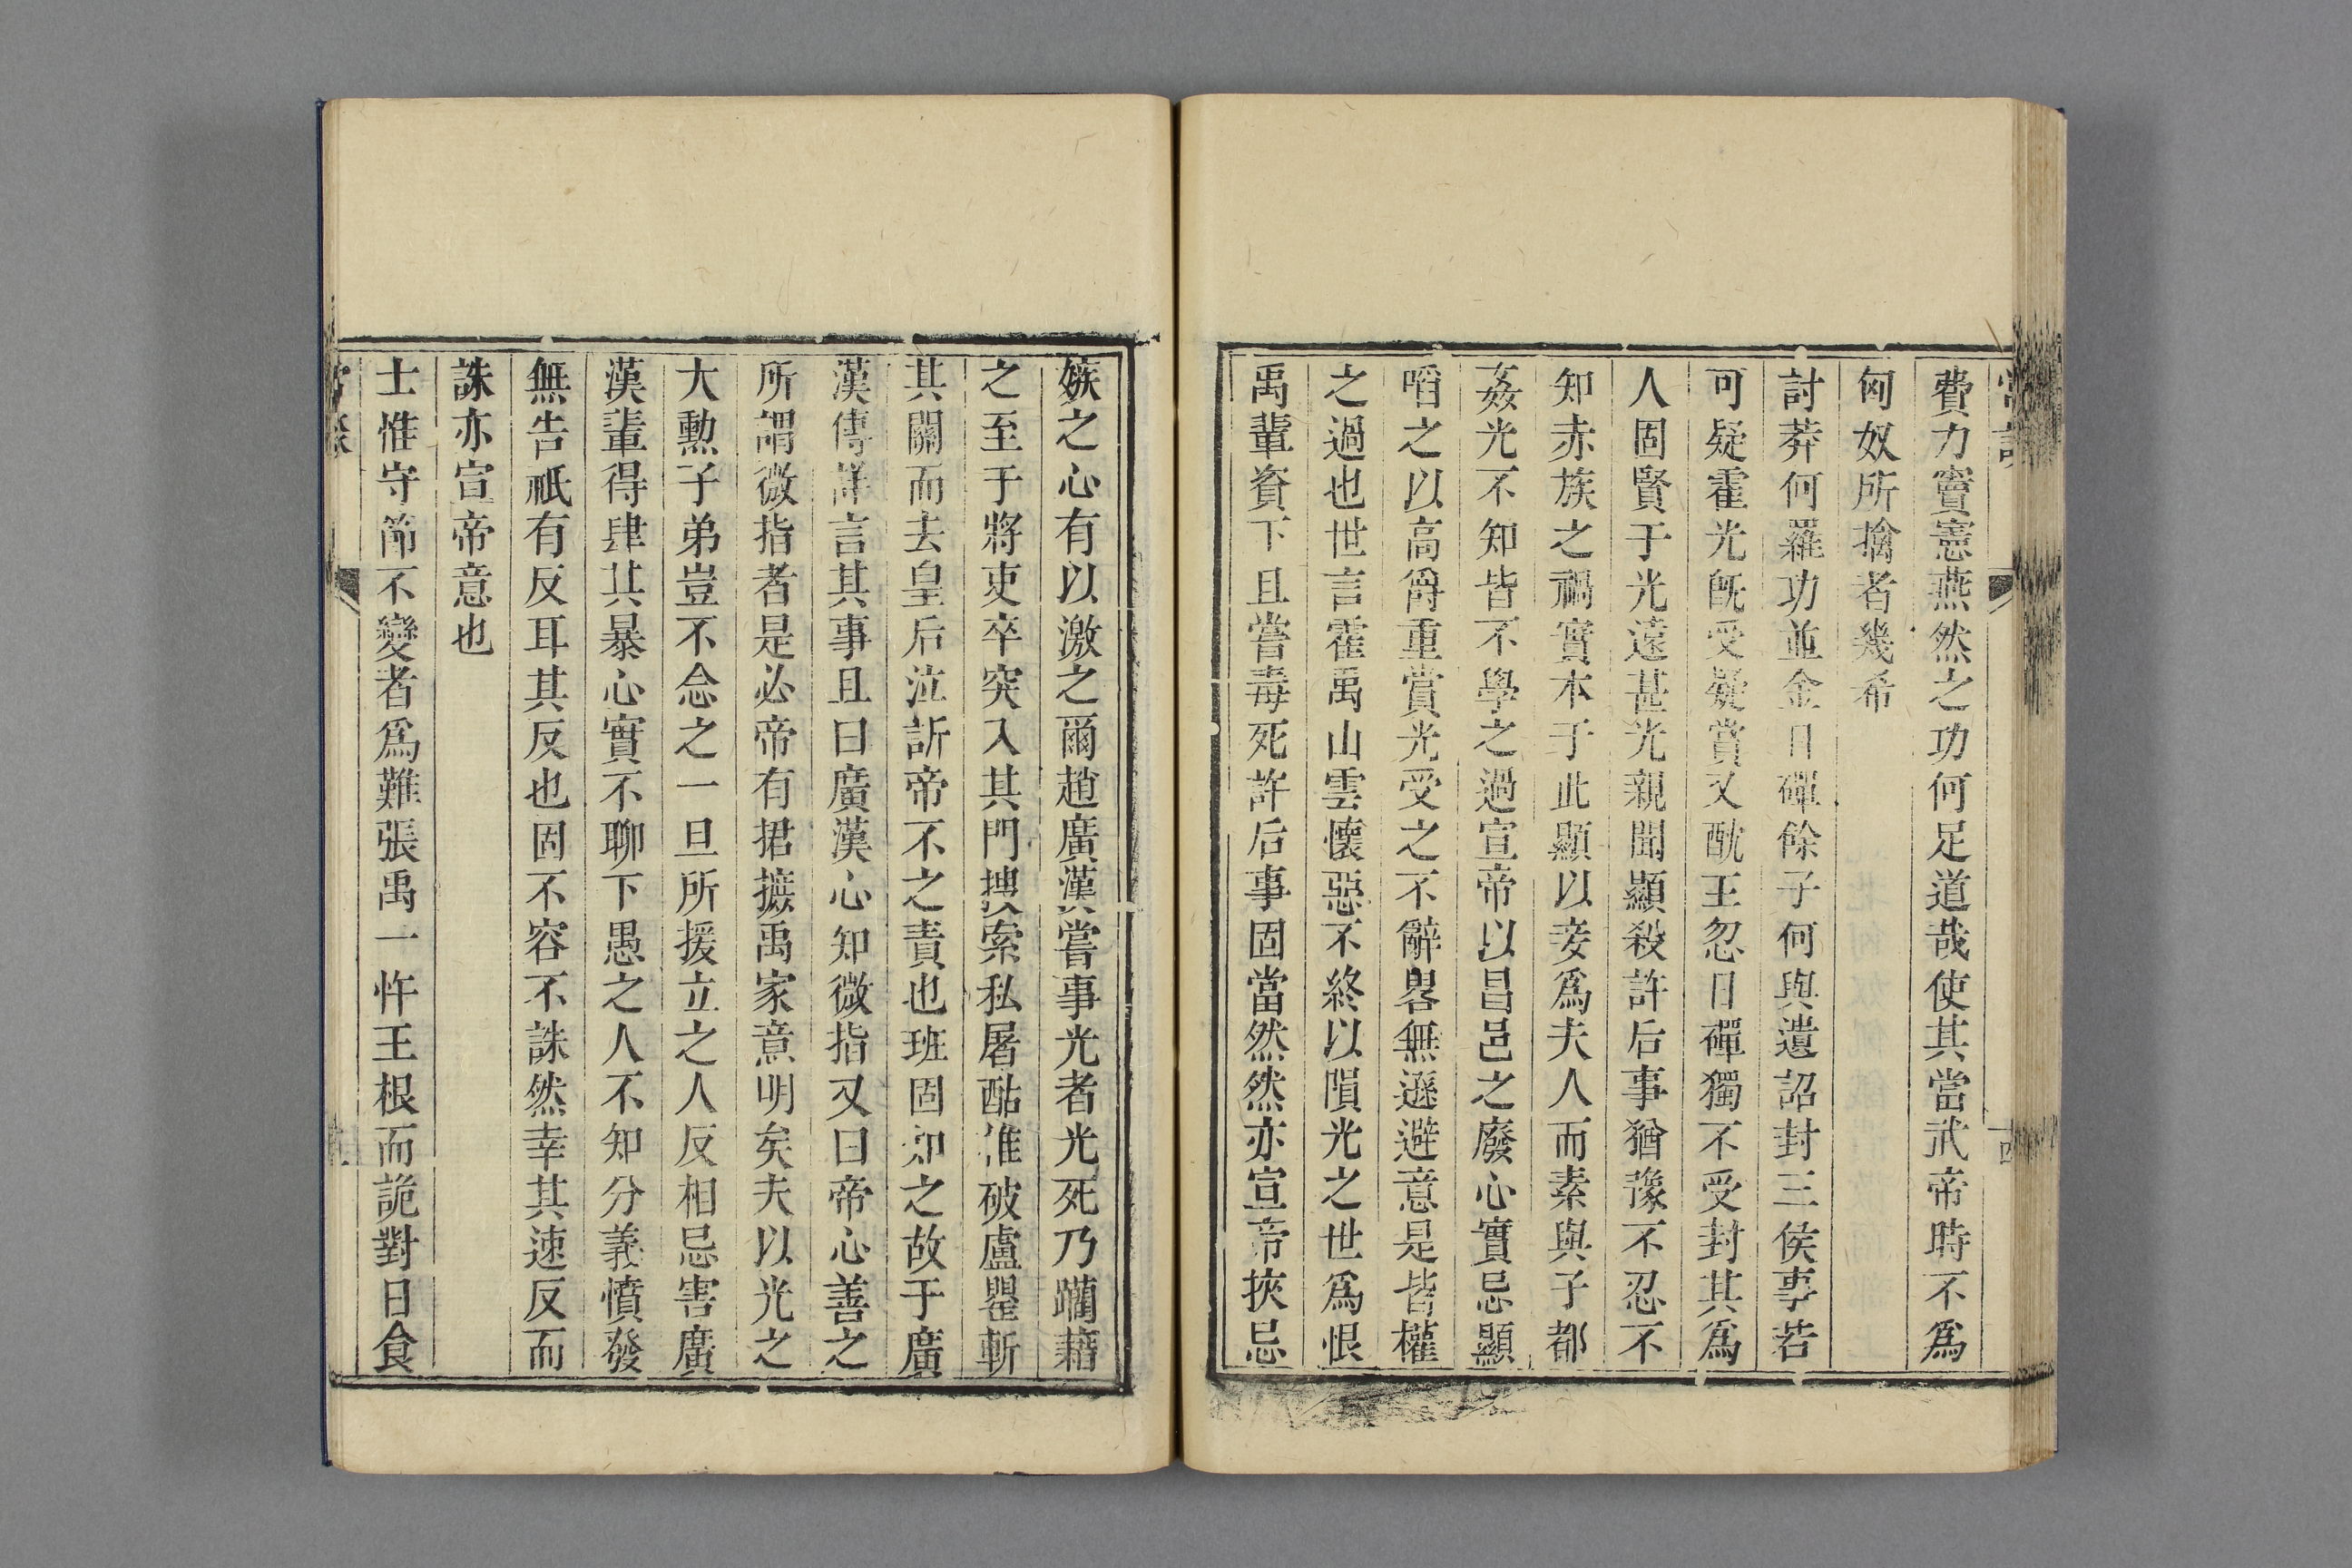 費力竇憲燕然之功何足道哉使其當武帝時不爲
匈奴所擒者幾希
討莽何羅功並金日磾餘子何與遺詔封三侯事若
可疑霍光旣受疑賞又酖王忽日磾獨不受封其爲
人固賢于光遠甚光親聞顯殺許后事猶豫不忍不
知赤族之禍實本于此顯以妾爲夫人而素與子都
姦光不知皆不學之過宣帝以昌邑之廢心實忌顯
啗之以高爵重賞光受之不辭畧無遜避意是皆權
之過也世言霍禹山雲懷惡不終以隕光之世爲恨
禹輩資下且嘗毒死許后事固當然然亦宣帝挾忌
嫉之心有以激之爾趙廣漢嘗事光者光死乃躪藉
之至于將吏卒突入其門搜索私屠酤椎破盧罌斬
其關而去皇后泣訴帝不之責也班固知之故于廣
漢傳詳言其事且曰廣漢心知微指又曰帝心善之
所謂微指者是必帝有捃摭禹家意明矣夫以光之
大勲子弟豈不念之一旦所援立之人反相忌害廣
漢輩得肆其暴心實不聊下愚之人不知分義憤發
無告祇有反耳其反也固不容不誅然幸其速反而
誅亦宣帝意也
士惟守節不變者爲難張禹一忤王根而詭對日食